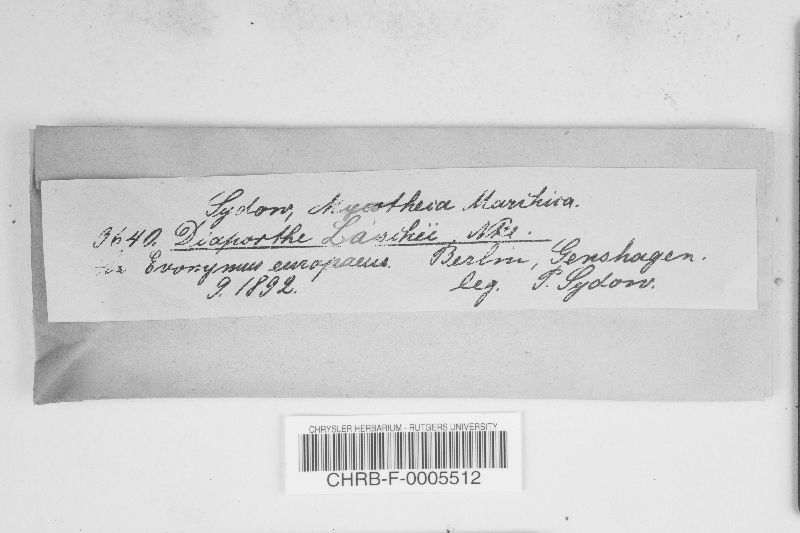 Sydow, Mycotheca Marchica.
3640. Diaporthe Laschii, Nke.
Evonymus europaeus. Berlin, Genshagen.
9. 1892. leg. P. Sydow.
CHRYSLER HERBARIUM - RUTGERS UNIVERSITY
CHRB-F-0005512